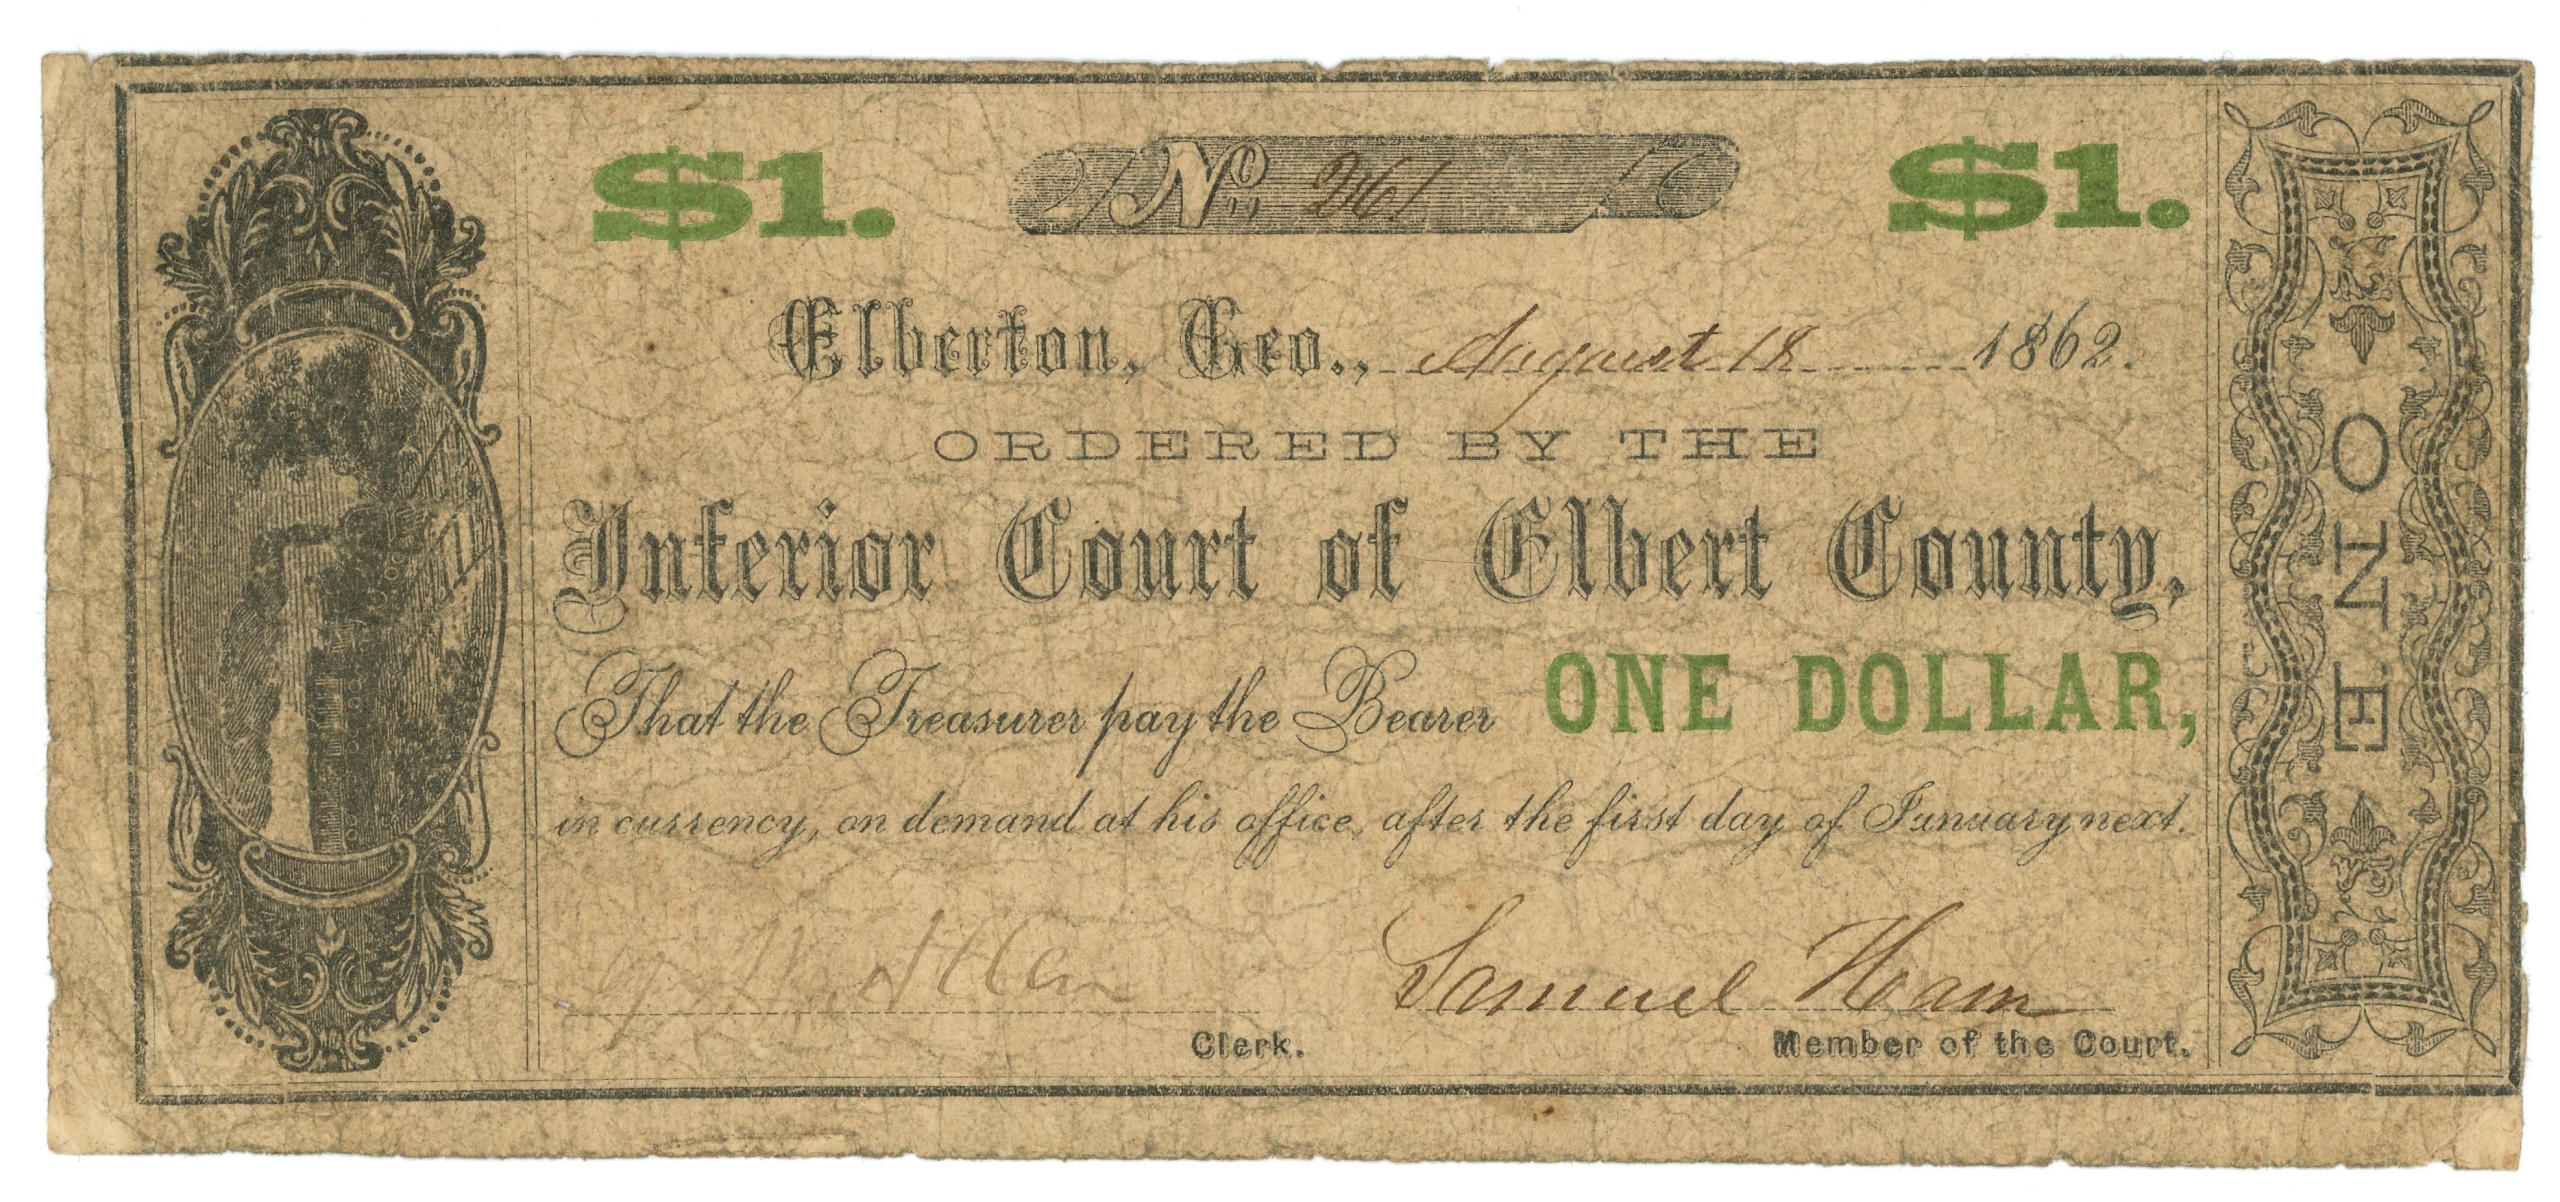 $1. No. 261 $1.
Elberton, Geo., August 18 1862.
ORDERED BY THE
Inferior Court of Elbert County,
That the Treasurer pay the Bearer ONE DOLLAR,
in currency, on demand at his office, after the first day of January next.
Allen
Samuel Ham
Clerk.
Member of the Court.
ONE